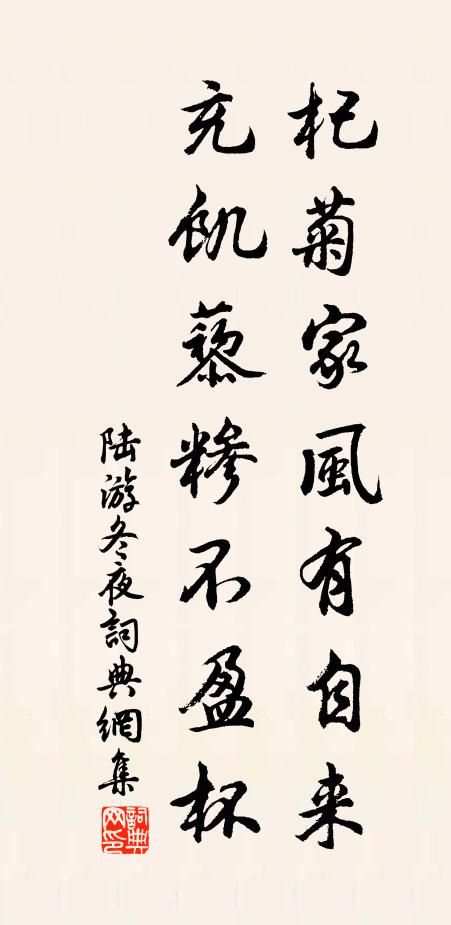 杞菊家風有自来
充飢藜糝不盈杯
陆游冬夜詞典網集
詞典网印